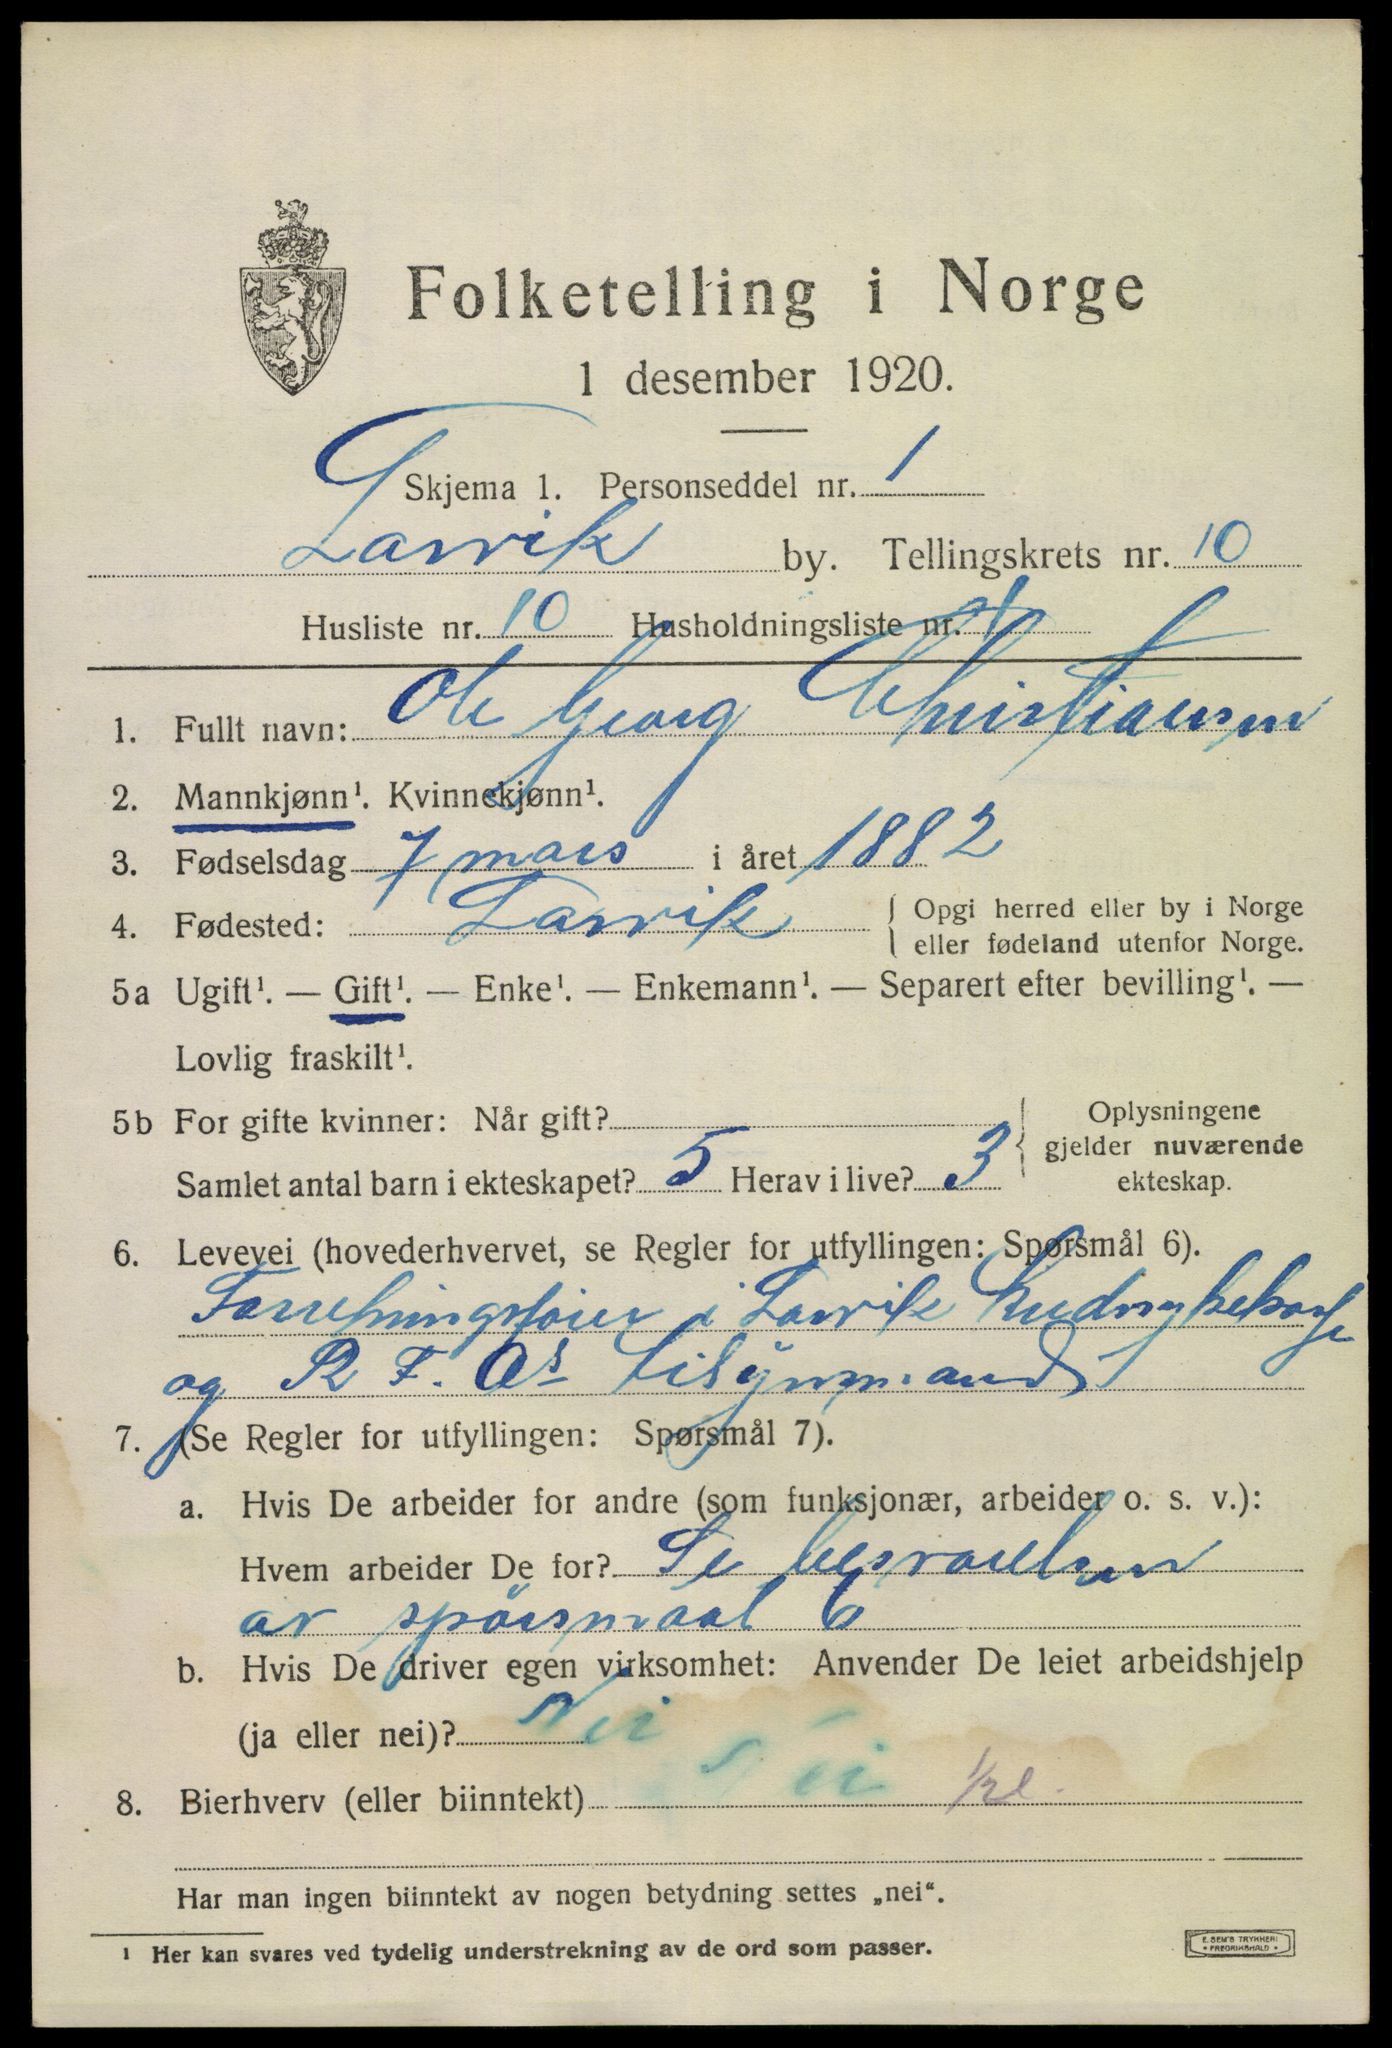 Folketelling i Norge
1 desember 1920.
Skjema 1. Personseddel nr. 1
Larvik by. Tellingskrets nr. 10
Husliste nr. 10 Husholdningsliste nr. 1
1. Fullt navn: Ole Georg Christiansen
2. Mannkjønn¹. Kvinnekjønn¹.
3. Fødselsdag 7 mars i året 1882
4. Fødested: Larvik { Opgi herred eller by i Norge
eller fødeland utenfor Norge.
5a Ugift¹. — Gift¹. — Enke¹. — Enkemann¹. — Separert efter bevilling¹. —
Lovlig fraskilt¹.
5b For gifte kvinner: Når gift?
Samlet antal barn i ekteskapet? 5 Herav i live? 3
Oplysningene
gjelder nuværende
ekteskap.
6. Levevei (hovederhvervet, se Regler for utfyllingen: Spørsmål 6).
Forretningsfører i Larvik
og R. F. Os tilsynsmand
7. (Se Regler for utfyllingen: Spørsmål 7).
a. Hvis De arbeider for andre (som funksjonær, arbeider o. s. v.):
Hvem arbeider De for? Se besvarelsen
av spörsmaal 6
b. Hvis De driver egen virksomhet: Anvender De leiet arbeidshjelp
(ja eller nei)? Nei
8. Bierhverv (eller biinntekt) Nei
Har man ingen biinntekt av nogen betydning settes „nei“.
¹ Her kan svares ved tydelig understrekning av de ord som passer.
E. SEM'S TRYKKERI
• FREDRIKSHALD •